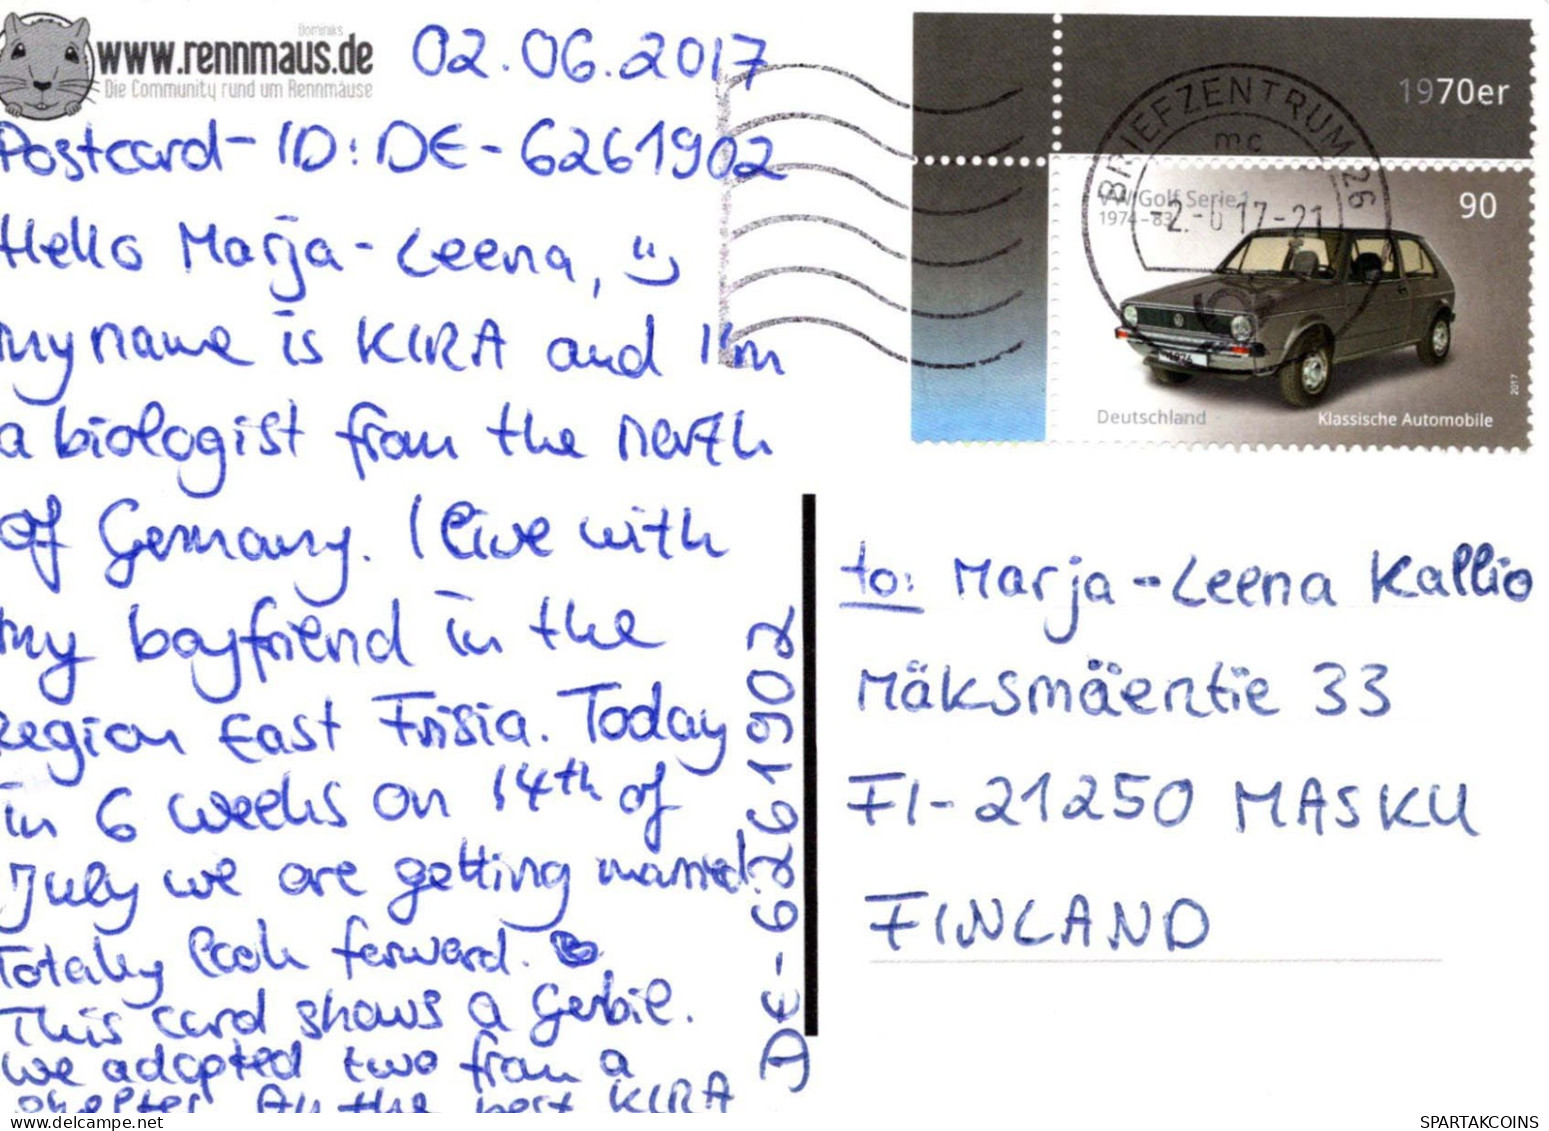 Dominiks
www.rennmaus.de
Die Community rund um Rennmäuse
02.06.2017
Postcard-ID: DE-6261902
Hello Marja-Leena,
my name is KIRA and I'm
a biologist from the North
of Germany. I live with
my boyfriend in the
Region East Frisia. Today
in 6 weeks on 14th of
July we are getting married.
Totally look forward.
This card shows a Gerbil.
We adopted two from a
shelter. All the best KIRA
DE-6261902
1970er
BRIEFZENTRUM 26
mc
VW Golf Serie 1
1974-83
90
Deutschland
Klassische Automobile
2017
to: Marja-Leena Kallio
Mäksmäentie 33
FI-21250 MASKU
FINLAND
delcampe.net
SPARTAKCOINS